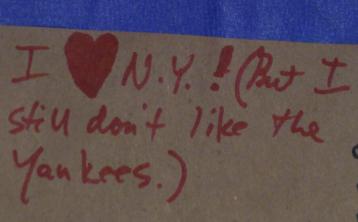 I ♥ N.Y.! (But I
still don't like the
Yankees.)